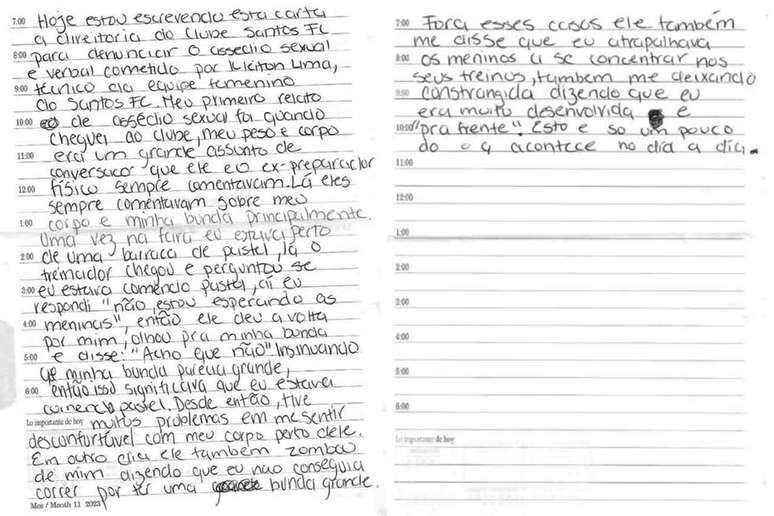 7:00 Hoje estou escrevendo esta carta
a direitoria do Clube Santos FC
8:00 para denunciar o assedio sexual
e verbal cometido por Kleiton Lima,
9:00 técnico da equipe femenino
do Santos FC. Meu primeiro relato
10:00 de assédio sexual foi quando
cheguei ao clube, meu peso e corpo
11:00 era um grande assunto de
conversacor que ele e o ex-preparador
12:00 físico sempre comentavam. Lá eles
sempre comentavam sobre meu
1:00 corpo e minha bunda principalmente.
Uma vez na faira eu estava perto
2:00 de uma barraca de pastel, lá o
treinador chegou e perguntou se
3:00 eu estava comendo pastel, aí eu
respondi "não, estou esperando as
4:00 meninas", então ele deu a volta
por mim, olhou pra minha bunda
5:00 e disse: "Acho que não" Insinuando
que minha bunda parecia grande,
6:00 então isso significava que eu estava
comendo pastel. Desde então, tive
Lo importante de hoy muitos problemas em me sentir
desconfortável com meu corpo perto dele.
Em outro dia ele também zombou
de mim dizendo que eu nao conseguia
correr por ter uma bunda grande.
Mes / Month 11 2023
7:00 Fora esses casos ele também
me disse que eu atrapalhava
8:00 os meninos a se concentrar nos
seus treinos, tambem me deixando
9:00 constrangida dizendo que eu
era muito desenvolvida e
10:00 "pra frente". Esto e so um pouco
do q acontece no dia a dia.
11:00
12:00
1:00
2:00
3:00
4:00
5:00
6:00
Lo importante de hoy